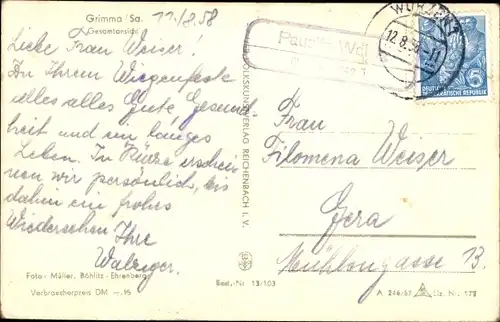 Grimma / Sa.
Gesamtansicht
11./8.58
Liebe Frau Weiser!
Zu Ihrem Wiegenfeste
alles alles Gute Gesund-
heit und ein langes
Leben. In Kürze erschei-
nen wir persönlich, bis
dahin ein frohes
Wiedersehen Ihre
Foto - Müller, Böhlitz - Ehrenberg
Verbraucherpreis DM -.15
Best.-Nr. 13/103
VOLKSKUNSTVERLAG REICHENBACH I. V.
WURZEN
12.8.58-11
DEUTSCHE
DEMOKRATISCHE REPUBLIK
5
Frau
Filomena Weiser
Gera
Mühlengasse 13.
A 246/57 Liz. Nr. 178